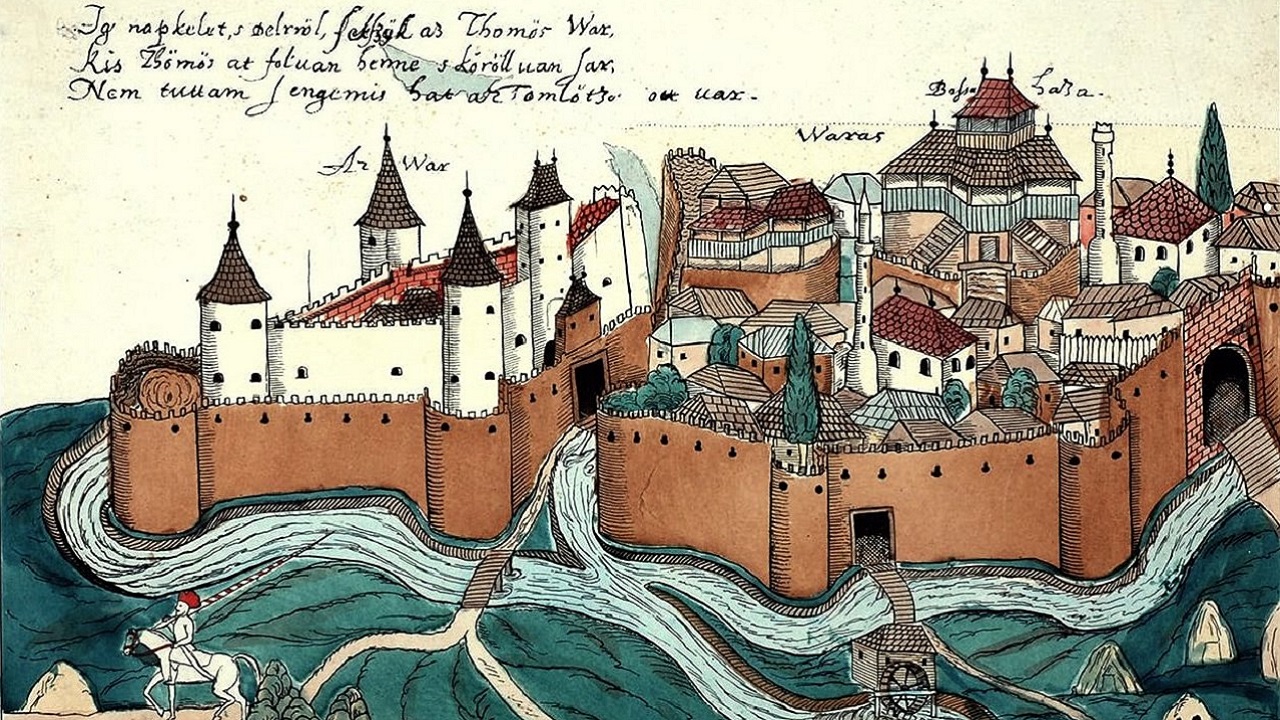 Ig napkelet,s delrröl, fekszÿk az Thomös War,
Kis Thömös at foluan benne s köröll uan sar,
Nem tuttam s engemis hat az Tomlötz ott uar.
Az War
Waras
Bassa haza.